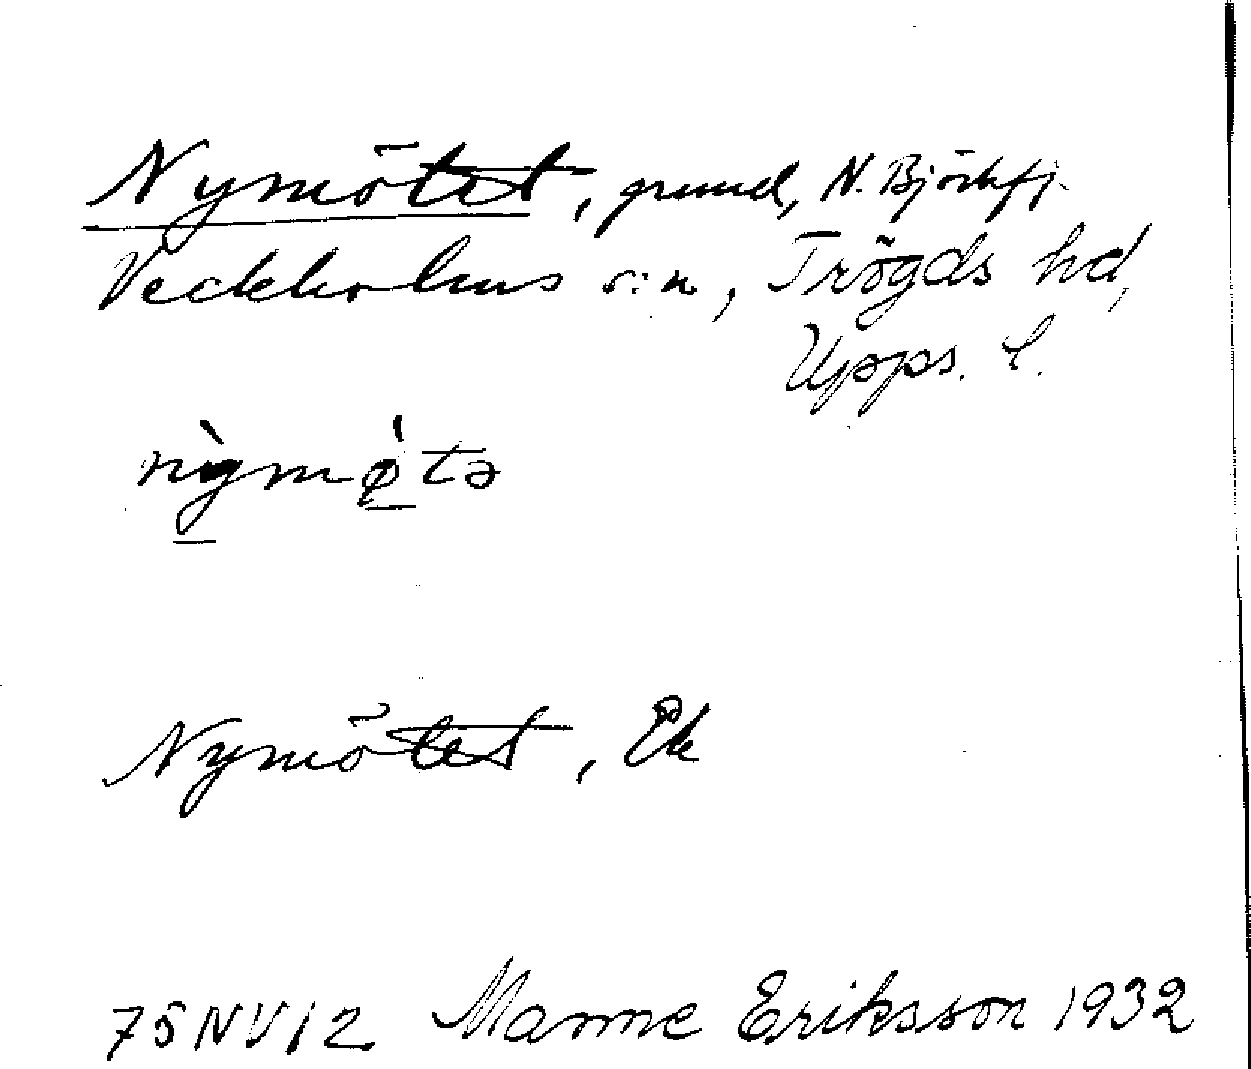 Nymötet, grund, N. Björkfj.
Veckholms s:n, Trögds hd,
Upps. l.
nỳmø̀tə
Nymötet, Ek
75NV12 Manne Eriksson 1932